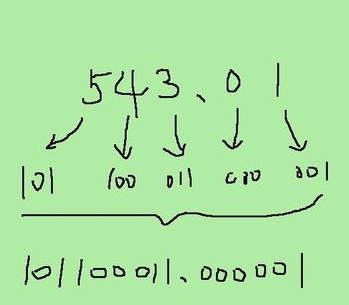 543.01
101 100 011 000 001
101100011.000001